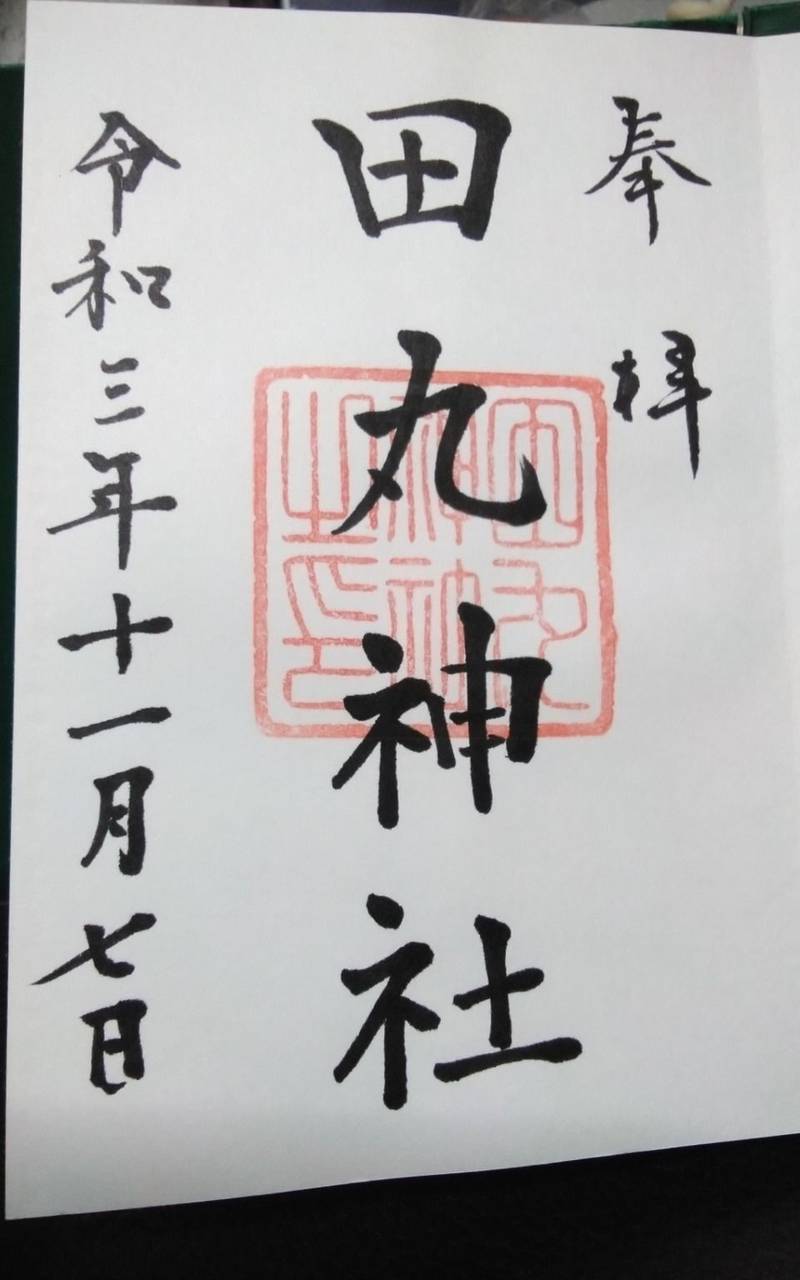 奉拝
田丸神社
田丸神社之印
令和三年十一月七日